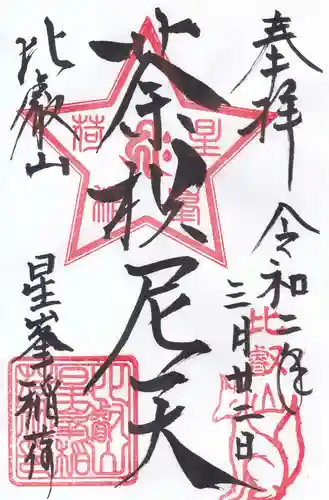 奉拝
令和二年
三月廿二日
荼枳尼天
比叡山
星峯稲荷
星峯稲荷
比叡山
比叡山
星峯稲荷